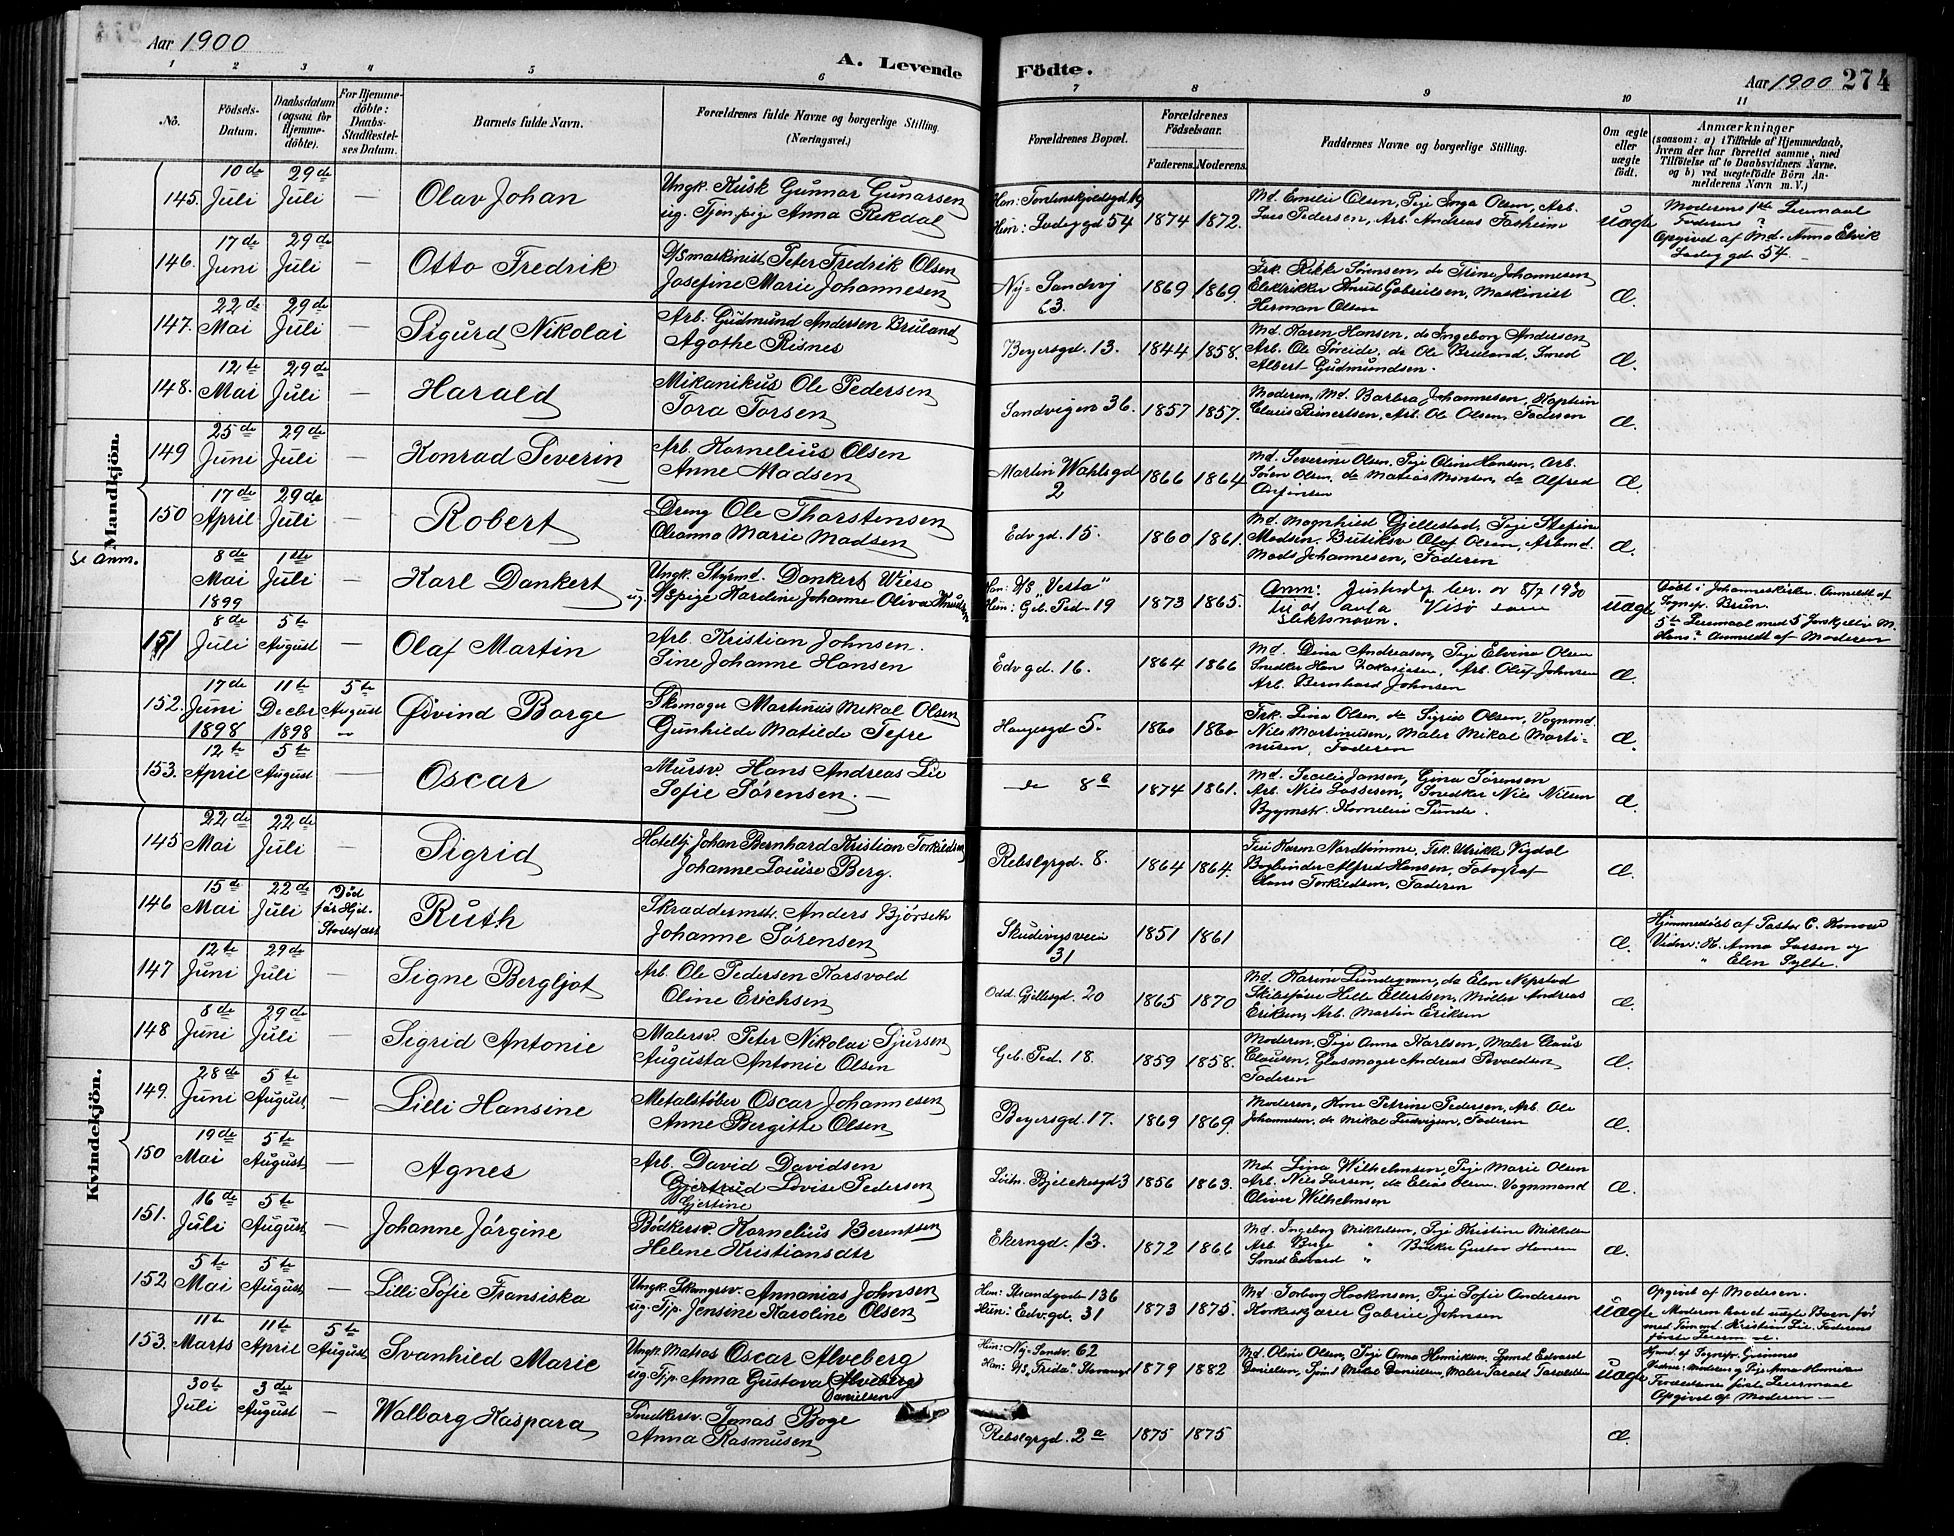 Aar 1900
A. Levende Födte.
Aar 1900 274
1 2 3 4 5 6 7 8 9 10 11
Nô.
Födsels-Datum.
Daabsdatum (ogsaa for Hjemmedöbte).
For Hjemmedöbte: Daabs-Stadfæstelses Datum.
Barnets fulde Navn.
Forældrenes fulde Navne og borgerlige Stilling. (Næringsvei.)
Forældrenes Bopæl.
Forældrenes Födselsaar.
Faderens. Moderens.
Faddernes Navne og borgerlige Stilling.
Om ægte eller uægte födt.
Anmærkninger
(saasom: a) i Tilfælde af Hjemmedaab, hvem der har forrettet samme, med Tilföielse af to Daabsvidners Navne, og b) ved uægtefödte Börn Anmelderens Navn m. V.)
Mandkjön.
145. 10de Juli 29de Juli — Olav Johan
Ungk. Kusk Gunnar Gunarsen
ug. Tjen.pige Anna Rekdal
Hun: Ladeggd 54 1874 1872.
Md. Emelie Olsen, Pige Inga Olsen, Arb.
Lars Pedersen, Arb. Andreas
uægte
Moderens 1ste Leiermaal
Faderens "
Opgivet af Md. Anna Elvik
Ladeg gd 54. —
146. 17de Juni 29de Juli — Otto Fredrik
Peter Fredrik Olsen
Josefine Marie Johannesen
Ny-Sandvg 63. 1869 1869.
Frk. Rikke Sørensen, do Stine Johannesen
Elektriker Knud Gabrielsen, Maskinist
Herman Olsen
Æ.
147. 22de Mai 29de Juli — Sigurd Nikolai
Arb. Gudmund Andersen Bruland
Agathe Risnes
Beyersgd. 13. 1844 1858.
Md. Karen Hansen, do Ingeborg Andersen
Arb. Ole Søreide, do Ole Bruland, Smed
Albert Gudmundsen.
Æ.
148. 12te Mai 29de Juli — Harald
Mikanikus Ole Pedersen
Tora Torsen
Sandvigen 36. 1857 1857.
Moderen, Md. Barbra Johannesen, Kaptein
Claus Reinertsen, Arb. Ole Olsen, Faderen
Æ.
149 25de Juni 29de Juli — Konrad Severin
Arb. Kornelius Olsen
Anne Madsen
Martin Wahlsgd 2 1866 1864
Md. Severine Olsen, Pige Oline Hansen, Arb.
Søren Olsen, do Matias Monsen, do Alfred
Æ.
150 17de April 29de Juli — Robert
Dreng Ole Thorstensen
Oleanna Marie Madsen
Edv gd. 15. 1860 1861.
Md. Magnhild Gjellestad, Pige Stefine
Madsen, Butiksv Olaf Olsen, Arbmd.
Mads Johannesen, Faderen
Æ.
Se Anm. 8de Mai 1899 1ste Juli — Karl Dankert
Ungk. Styrmd. Dankert Wiese
ug. Karoline Johanne Oliva Knudsen
Han: D/S "Vesta"
Hun: Geb. Ped. 19 1873 1865.
Anm: 8/2 1930
slektsnavn.
uægte
Døbt i Johanneskirke. Anmeldt af
Sognepr. Brun.
Anmeldt af Moderen
151 8de Juli 5te August — Olaf Martin
Arb. Kristian Johnsen.
Sine Johanne Hansen
Edv gd. 16. 1864 1866
Md. Dina Andreasen, Pige Elvina Olsen
Snedker Hans Zakariasen, Arb. Oluf Johnsen
Arb. Bernhard Johnsen
Æ.
152. 17de Juni 1898 11te Decbr 1898 5te August Øivind Borge
Skomager Martinus Mikal Olsen
Gunhilde Matilde Tefre
Haugesgd 5. 1860 1860
Frk. Lina Olsen, do Sigrid Olsen, Vognmd.
Nils Martinusen, Maler Mikal Martinusen, Faderen
Æ
153. 12te April 5te August — Oscar
Mursv. Hans Andreas Lie
Sofie Sørensen. —
do 8a 1874 1861.
Md. Secilie Jansen, Gina Sørensen
Arb. Nils Lassesen, Snedker Nils Nilsen
Bygmstr. Kornelius Sunde.
Æ.
Kvindekjön.
145 22de Mai 22de Juli — Sigrid
Johan Bernhard Kristian Torkildsen
Johanne Louise Berg.
Rebslgrgd. 8. 1864 1864.
Pige Karen Nordtømme, Frk. Ulrikke Vigdal
Bogbinder Alfred Hansen, Fotograf
Claus Torkildsen, Faderen
Æ.
146 15de Mai 22de Juli Død før Hjd. Stadsfæst Ruth
Skraddermstr. Anders Bjørseth
Johanne Sørensen
Skudevigsveien 31 1851 1861
Æ.
Hjemmedøbt af Pastor C. Konow
Vidner: K. Anna Larsen og
" Elen Sylte.
147 12te Juni 29de Juli — Signe Bergljot
Arb. Ole Pedersen Karsvold
Oline Erichsen
Odd. Gjellesgd. 20 1865 1870
Md. do Elen Nipstad
Skibsfører Helle Ellertsen, Møller Andreas
Eriksen, Arb. Martin Eriksen
Æ.
148 8de Juni 29de Juli — Sigrid Antonie
Malersv. Peter Nikolai Sjursen
Augusta Antonie Olsen
Geb. Ped. 18. 1859 1858.
Moderen, Pige Anna Karlsen, Maler Claus
Clausen, Glasmager Andreas
Faderen
Æ.
149. 28de Juni 5te August — Lilli Hansine
Metalstøber Oscar Johannesen
Anne Bergitte Olsen
Beyersgd. 17. 1869 1869.
Moderen, Kone Petrine Pedersen, Arb. Ole
Johannesen, do Mikal Ludvigsen, Faderen
Æ.
150 19de Mai 5te August — Agnes
Arb. David Davidsen
Gjertrud Lovise Pedersen
Gjertine
Løitn. Bjelckesgd 3 1856 1863.
Md. Lina Wilhelmsen, Pige Marie Olsen
Arb. Nils Larsen, do Elias Olsen. Vognmand
Oliver Wilhelmsen
Æ.
151. 16de Juli 5te August — Johanne Jørgine
Bødkersv. Kornelius Berentsen
Helene Kristiansdtr
Ekerngd. 13. 1872 1866
Md. Ingeborg Mikkelsen, Pige Kristine Mikkelsen
Arb. Birge " Bødker Gustav Hansen
Smed Edvard "
Æ.
152 5te Mai 5te August — Lilli Sofie Fransiska
Ungk. Annanias Johnsen
ug. Tjp. Jensine Karoline Olsen
Han: Strandgaden 136
Hun: Edv.gd. 31 1873 1875.
Md Torborg Haakonsen, Pige Sofie Andersen
Korkeskjærer Gabriel Johnsen
uægte
Opgivet af Moderen.
Moderen har et uægte Barn før
med Tømmd. Kristian Lie. Faderens
første Leierm
153. 11te Marts 11te April 5te August Svanhild Marie
Ungk. Matros Oscar Alveberg
ug. Tjp. Anna Gustava Alveberg
Danielsen
Hun: Ny-Sandv. 62
Han: D/S "Frida" Stavanger 1879 1882
Md. Oline Olsen, Pige Anna Henriksen, Smed Edvard
Danielsen, Mikal Danielsen, Maler Tarald Taraldsen
uægte
Hjmd. af Sognepr. Grønnes
Vidner: Moderen og Pige Anna Henriksen
Forældrenes første Leiermaal
Opgivet af Moderen —
30te Juli 3die August — Walborg Kaspara
Snedkersv. Jonas Boge
Anna Rasmusen
Rebslgrgd. 2a 1875 1875
Æ.